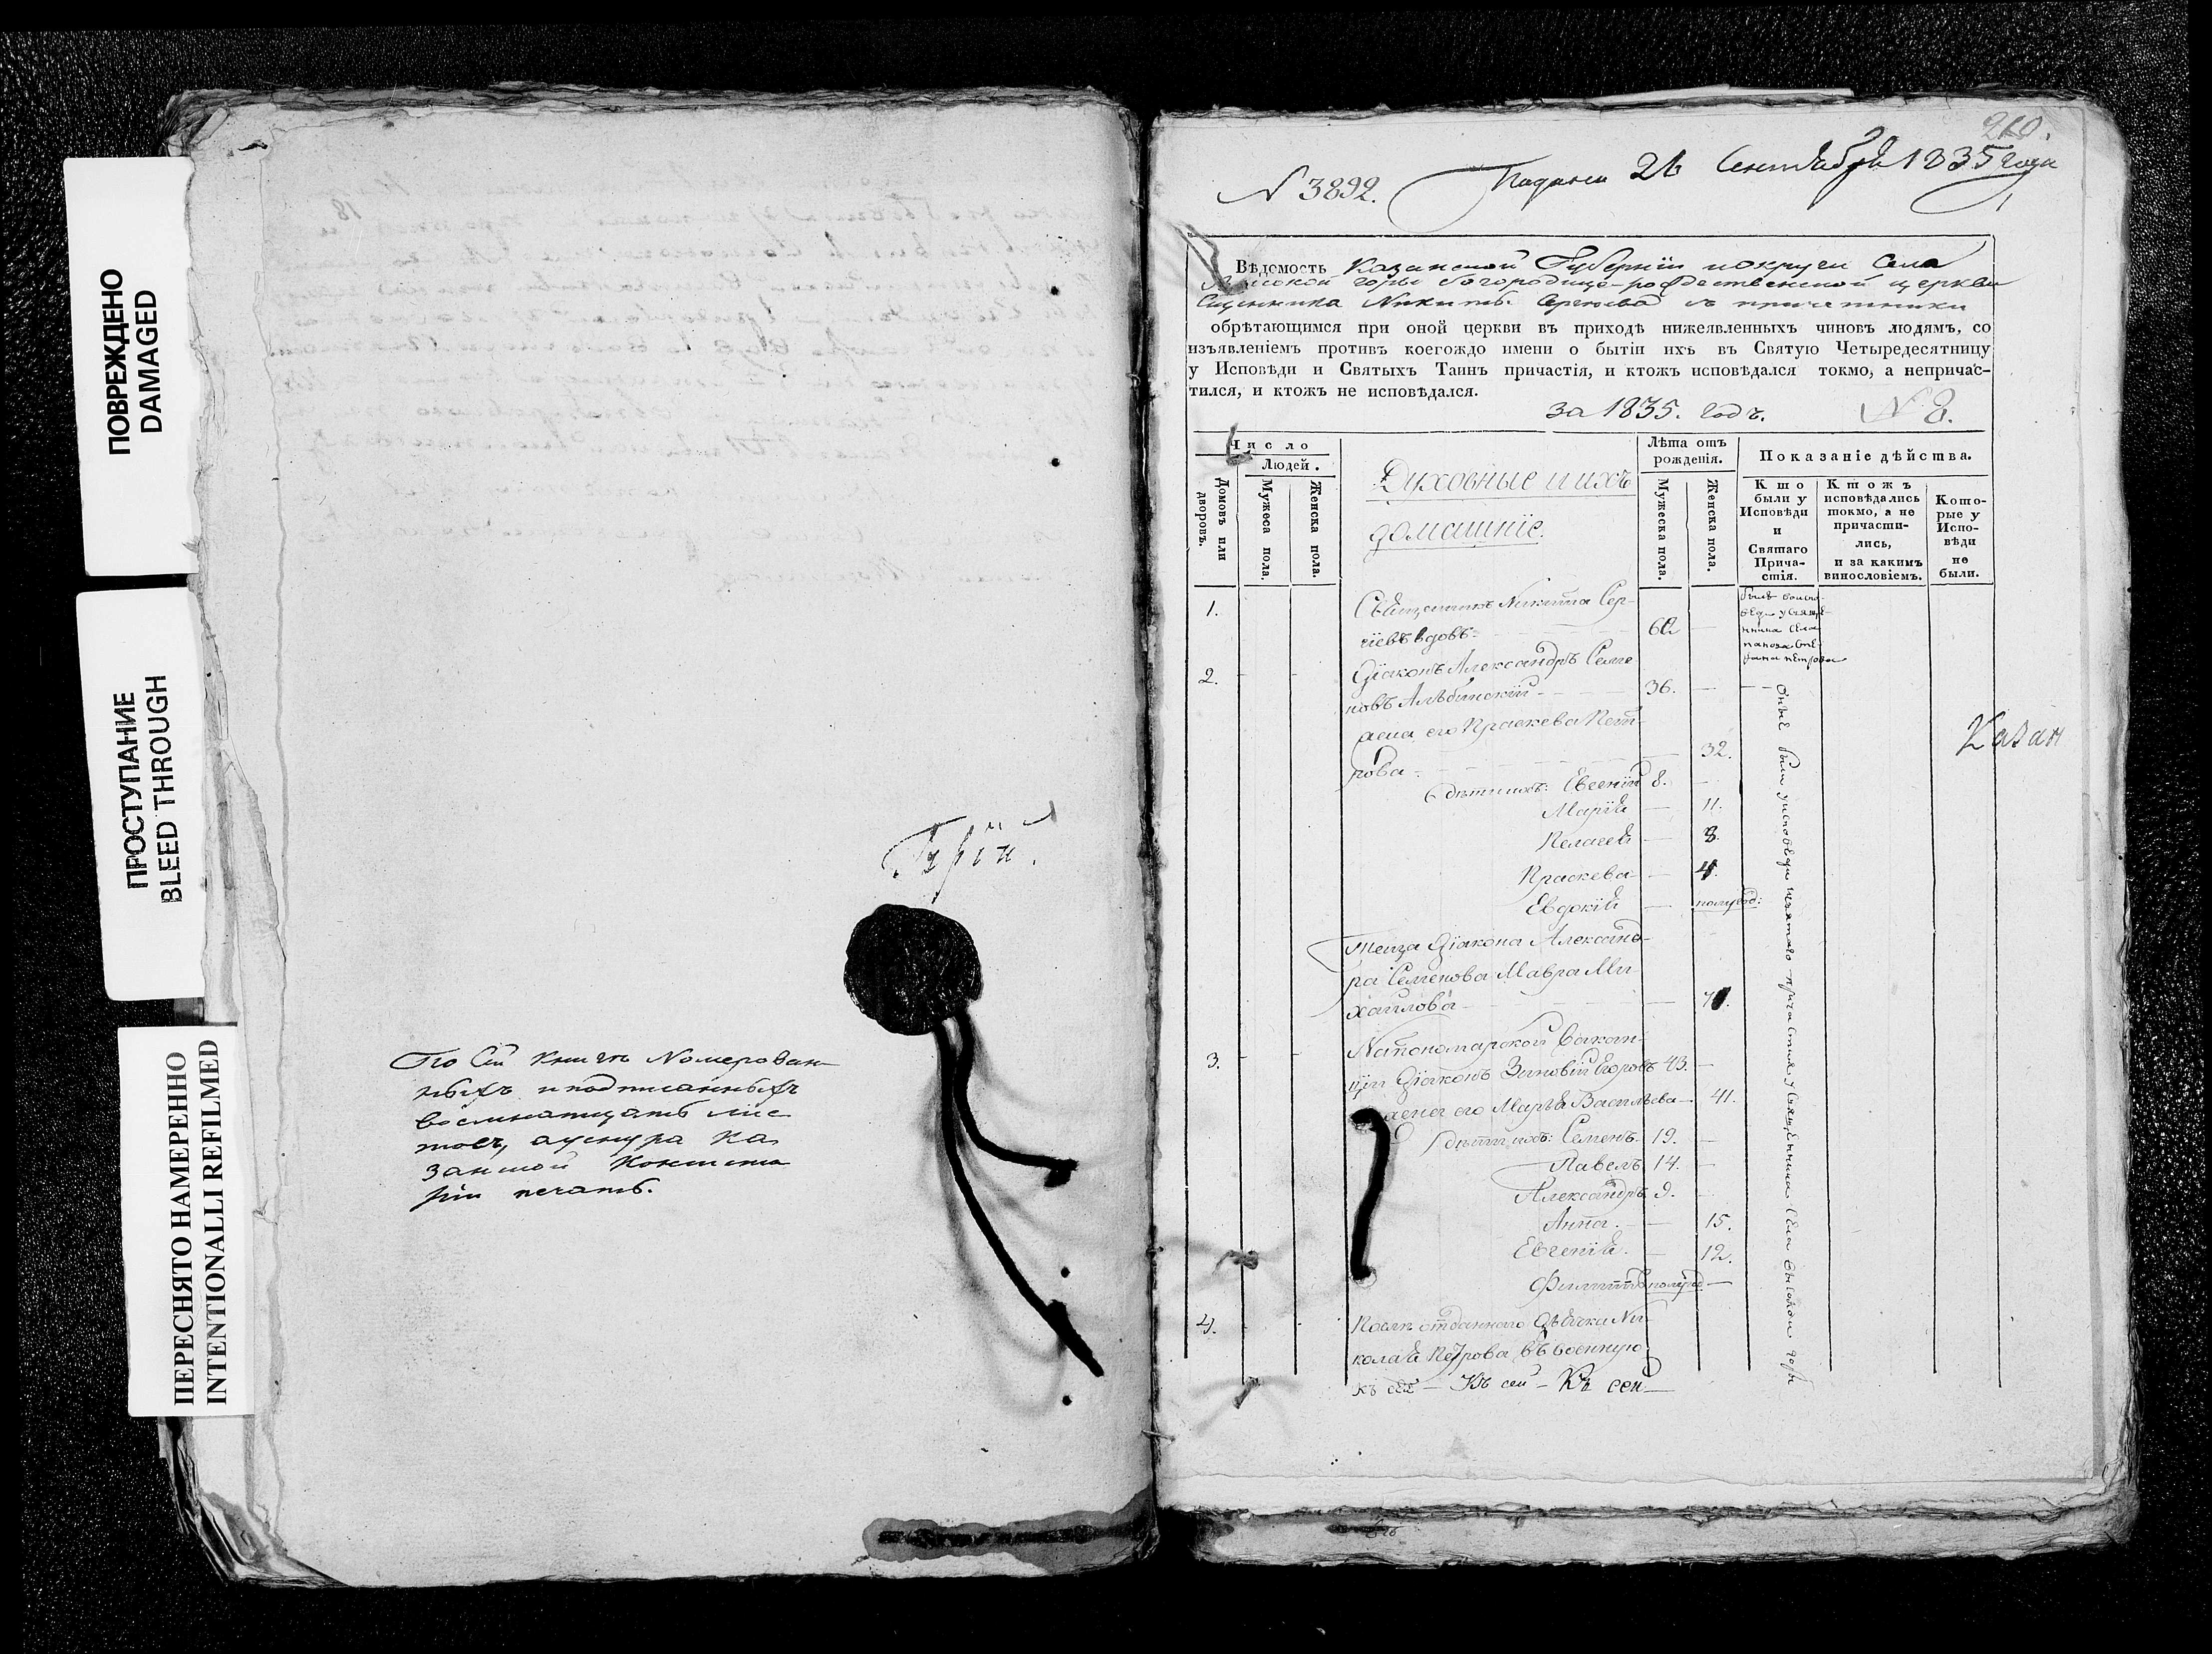 ПОВРЕЖДЕНО
DAMAGED
ПРОСТУПАНИЕ
BLEED THROUGH
ПЕРЕСНЯТО НАМЕРЕННО
INTENTIONALLI REFILMED
По сей книгѣ Номерован
ныхъ и подписанныхъ
восмнатцать лис
товъ, ауснура Ка
занской Консисто
ріи печать.
210.
N 3892.
Подана 26 Сентября 1835 года
Вѣдомость Казанской Губерніи и округи Села
Высокой горы Богородице-рождественской церкви
Сщенника Никиты Сергіева съ причетники
обрѣтающимся при оной церкви въ приходѣ нижеявленныхъ чиновъ людямъ, со
изъявленіемъ противъ коегождо имени о бытіи ихъ въ Святую Четыредесятницу
у Исповѣди и Святыхъ Таинъ причастія, и ктожъ исповѣдался токмо, а непричас-
тился, и ктожъ не исповѣдался.
за 1835. годъ.
N 8.
Число
Людей.
Домовъ или дворовъ.
Мужеса пола.
Женска пола.
Духовные и ихъ
домашніе.
Лѣта отъ
рожденія.
Мужеска пола.
Женска пола.
Показаніе дѣйства.
Кто
были у
Исповѣди
и
Святаго
Прича-
стія.
Ктожъ
исповѣдались
токмо, а не
причасти-
лись,
и за какимъ
винословіемъ.
Кото-
рые у
Испо-
вѣди
не
были.
1.
Священникъ Никита Сер-
гіевъ вдовъ
2.
Діаконъ Александръ Семе
новъ Альбинскій 36.
жена его Праскева Пет-
рова 32.
дѣти ихъ: Евсеній 8.
Марія 11.
Пелагея 8.
Праскева 4.
Евдокія полугод:
Теща Діакона Александ-
ра Семенова Мавра Ми-
хайлова
3.
На пономарской вакан-
ціи Діаконъ Зиновій Егоровъ 43.
жена его Марья Васильева 41.
дѣти ихъ: Семенъ 19.
Павелъ 14.
Александръ 9.
Анна 15.
Евгенія 12.
Филиппъ полугод
4.
Послѣ отданнаго дьячка Ни-
колая Петрова въ военную
къ сей — Къ сей — Къ сей
Казан